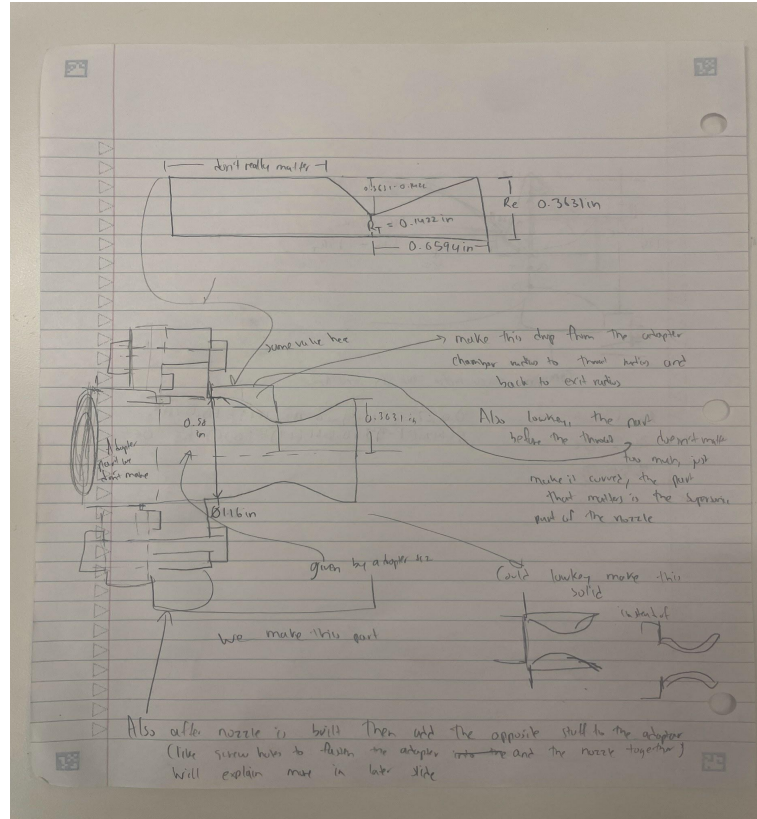 don't really matter
Re 0.3631 in
= 0.1422 in
0.6594 in
same value here
make this drop from the adapter
chamber radius to throat radius and
back to exit radius
0.58
in
0.3631 in
Also lowkey, the part
before the throat doesn't matter
too much, just
make it curved, the part
that matters is the supersonic
part of the nozzle
Adapter
part we
don't make
Ø1.16 in
given by adapter
Could lowkey make this
solid
instead of
We make this part
Also after nozzle is built then add the opposite stuff to the adapter
(like screw holes to fasten the adapter and the nozzle together)
Will explain more in later slide